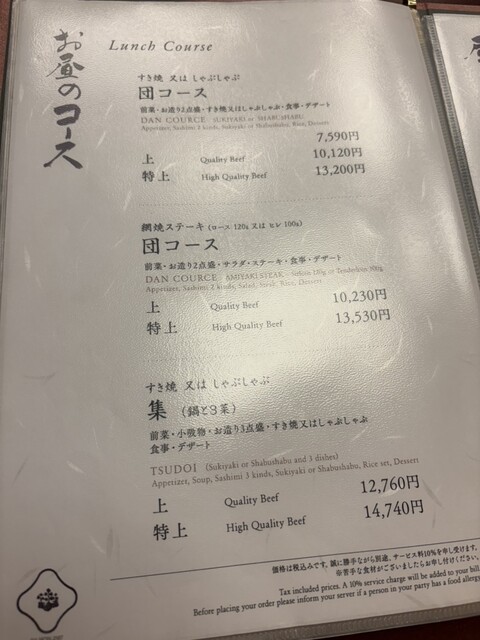 お昼のコース
Lunch Course
すき焼 又は しゃぶしゃぶ
団コース
前菜・お造り2点盛・すき焼又はしゃぶしゃぶ・食事・デザート
DAN COURCE SUKIYAKI or SHABUSHABU
Appetizer, Sashimi 2 kinds, Sukiyaki or Shabushabu, Rice, Dessert
7,590円
上 Quality Beef 10,120円
特上 High Quality Beef 13,200円
網焼ステーキ (ロース 120g 又は ヒレ 100g)
団コース
前菜・お造り2点盛・サラダ・ステーキ・食事・デザート
DAN COURCE AMIYAKI STEAK Sirloin 120g or Tenderloin 100g
Appetizer, Sashimi 2 kinds, Salad, Steak, Rice, Dessert
上 Quality Beef 10,230円
特上 High Quality Beef 13,530円
すき焼 又は しゃぶしゃぶ
集 (鍋と3菜)
前菜・小吸物・お造り3点盛・すき焼又はしゃぶしゃぶ
食事・デザート
TSUDOI (Sukiyaki or Shabushabu and 3 dishes)
Appetizer, Soup, Sashimi 3 kinds, Sukiyaki or Shabushabu, Rice set, Dessert
上 Quality Beef 12,760円
特上 High Quality Beef 14,740円
価格は税込みです。誠に勝手ながら別途、サービス料10%を申し受けます。
※苦手な食材がございましたらお申し付けください。
Tax included prices. A 10% service charge will be added to your bill.
Before placing your order please inform your server if a person in your party has a food allergy.